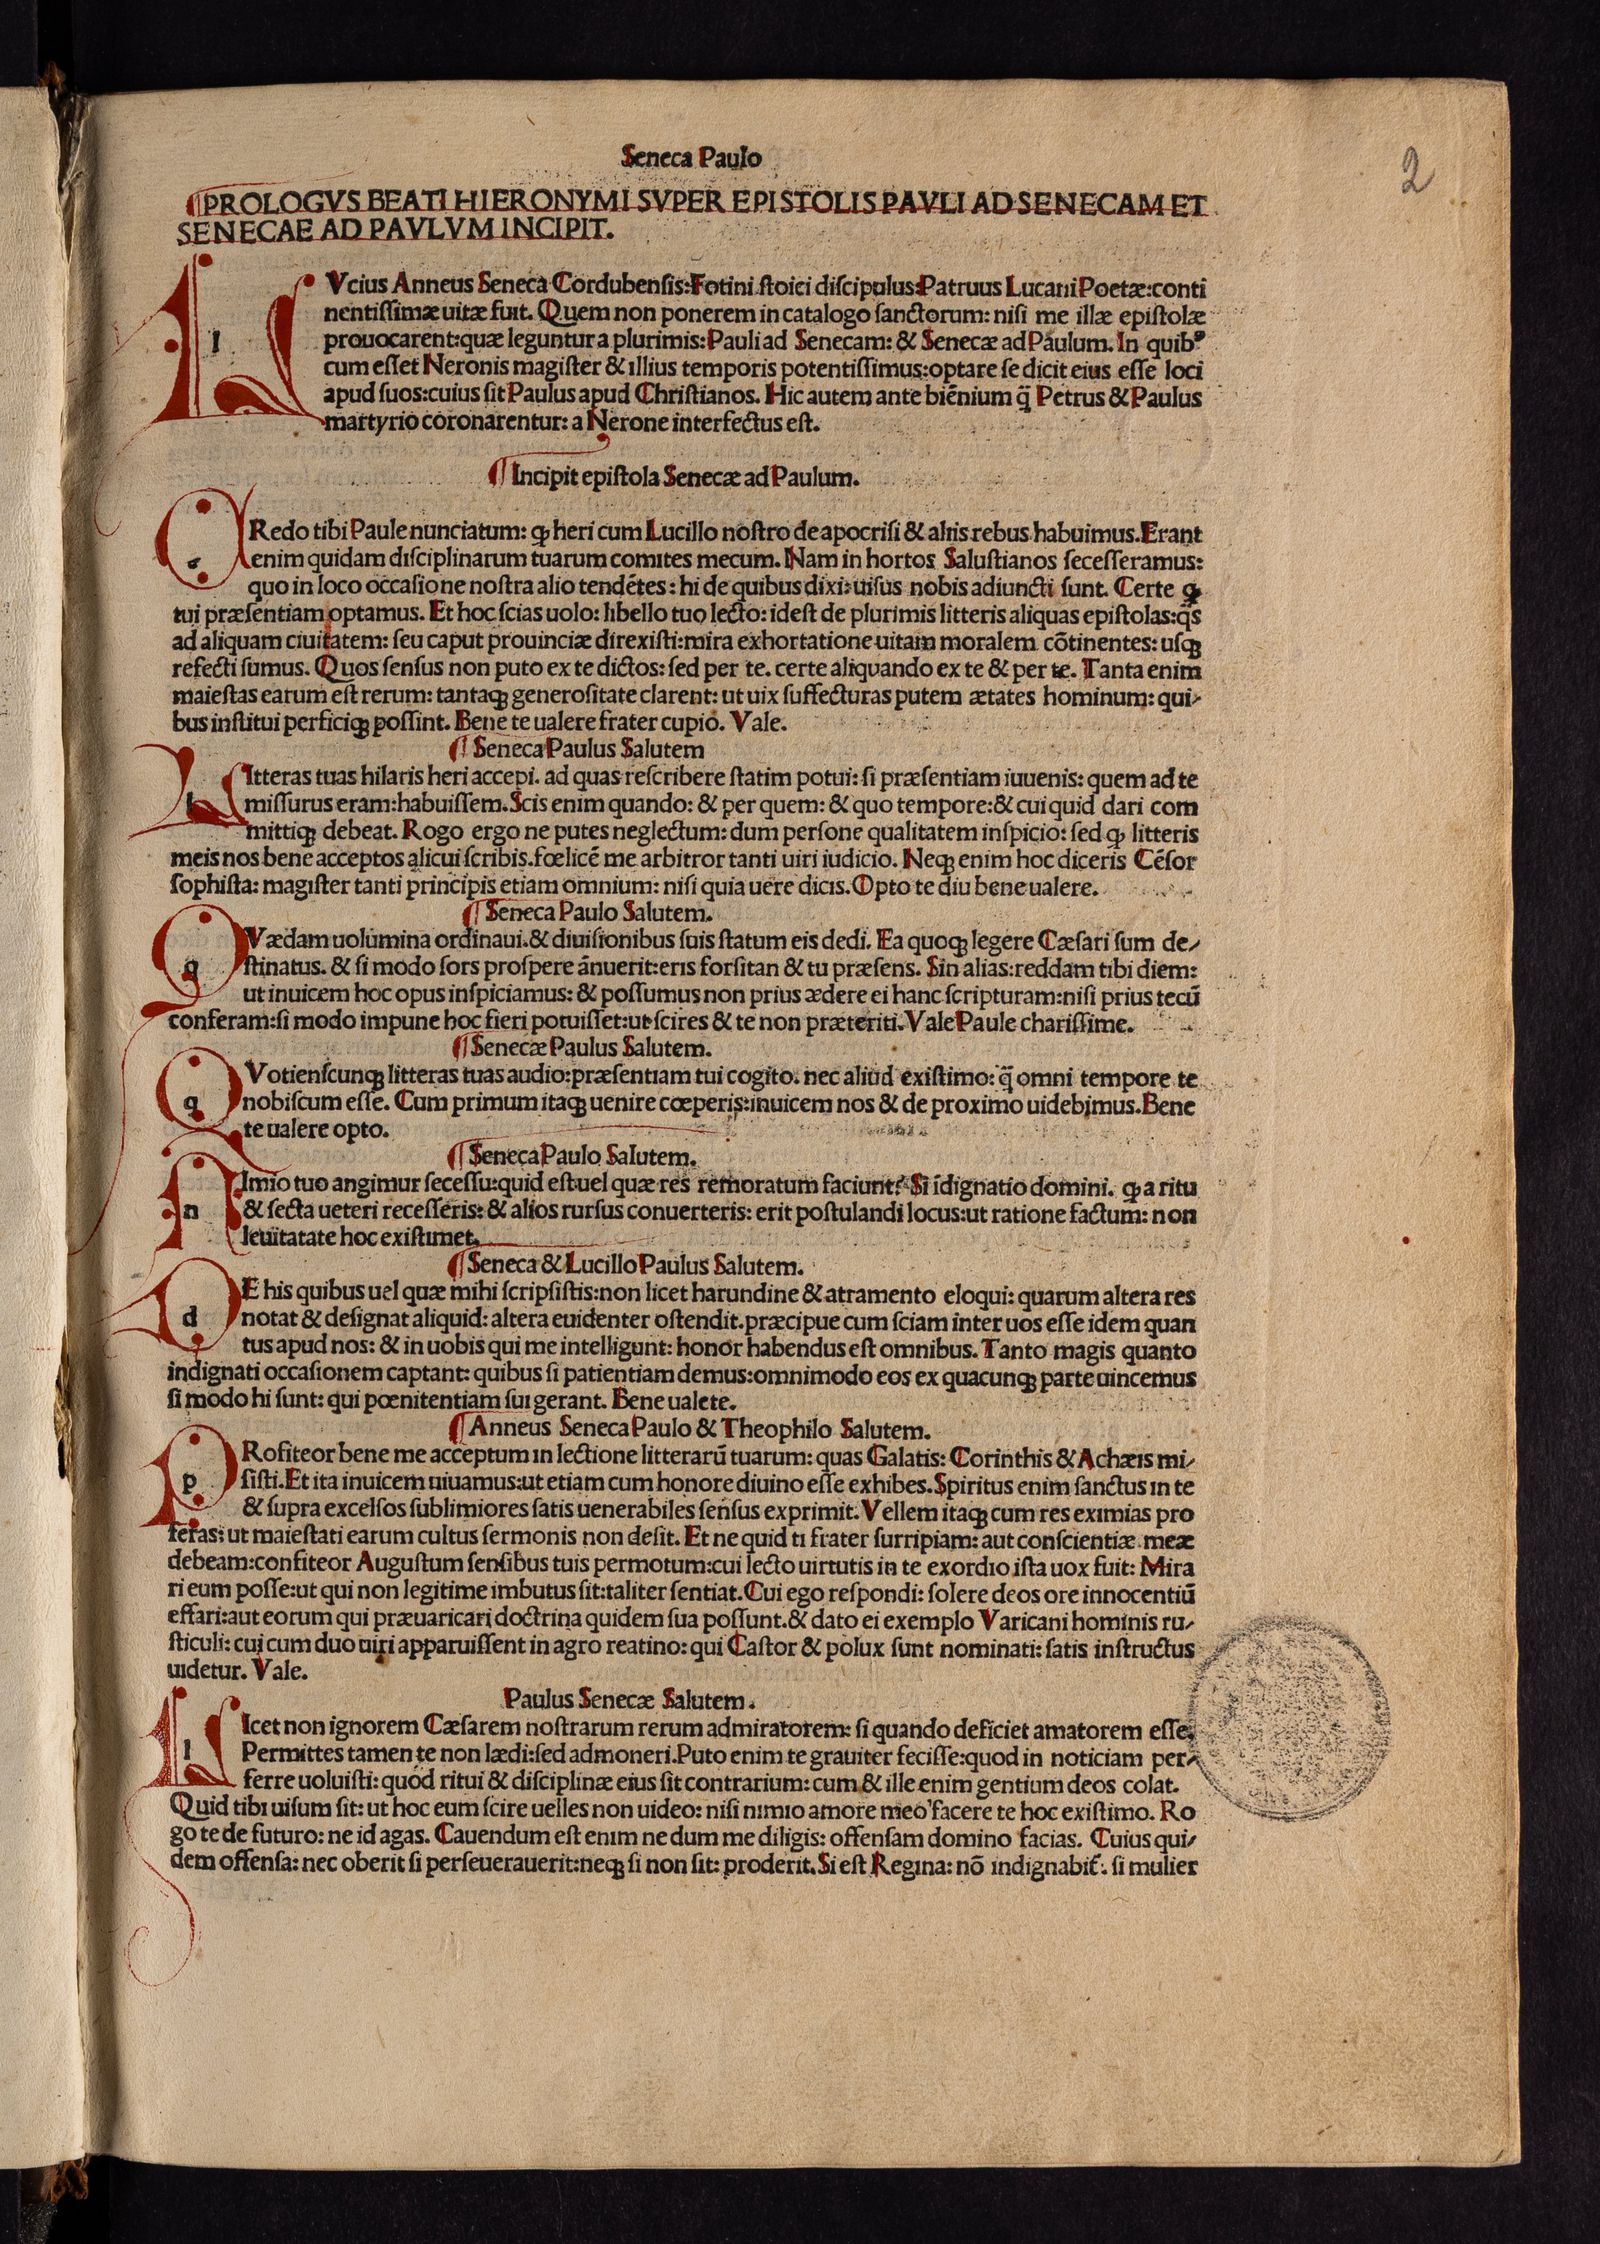 Seneca Paulo
2
¶PROLOGVS BEATI HIERONYMI SVPER EPISTOLIS PAVLI AD SENECAM ET
SENECAE AD PAVLVM INCIPIT.
LVcius Anneus Seneca Cordubenſis:Fotini ſtoici diſcipulus:Patruus Lucani Poetæ:conti
nentiſſimæ uitæ fuit. Quem non ponerem in catalogo ſanctorum: niſi me illæ epiſtolæ
prouocarent:quæ leguntur a plurimis:Pauli ad Senecam: & Senecæ ad Paulum. In quibꝰ
cum eſſet Neronis magiſter & illius temporis potentiſſimus:optare ſe dicit eius eſſe loci
apud ſuos:cuius ſit Paulus apud Chriſtianos. Hic autem ante biēnium q̄ Petrus & Paulus
martyrio coronarentur: a Nerone interfectus eſt.
¶Incipit epiſtola Senecæ ad Paulum.
CRedo tibi Paule nunciatum: ꝙ heri cum Lucillo noſtro de apocriſi & aliis rebus habuimus.Erant
enim quidam diſciplinarum tuarum comites mecum. Nam in hortos Saluſtianos ſeceſſeramus:
quo in loco occaſione noſtra alio tendētes: hi de quibus dixi: uiſus nobis adiuncti ſunt. Certe ꝙ
tui præſentiam optamus. Et hoc ſcias uolo: libello tuo lecto: ideſt de plurimis litteris aliquas epiſtolas:q̄s
ad aliquam ciuitatem: ſeu caput prouinciæ direxiſti:mira exhortatione uitam moralem cōtinentes: uſqꝫ
refecti ſumus. Quos ſenſus non puto ex te dictos: ſed per te. certe aliquando ex te & per te. Tanta enim
maieſtas earum eſt rerum: tantaqꝫ generoſitate clarent: ut uix ſuffecturas putem ætates hominum: qui-
bus inſtitui perficiqꝫ poſſint. Bene te ualere frater cupio. Vale.
¶Seneca Paulus Salutem
LItteras tuas hilaris heri accepi. ad quas reſcribere ſtatim potui: ſi præſentiam iuuenis: quem ad te
miſſurus eram:habuiſſem. Scis enim quando: & per quem: & quo tempore:& cui quid dari com
mittiqꝫ debeat. Rogo ergo ne putes neglectum: dum perſone qualitatem inſpicio: ſed ꝙ litteris
meis nos bene acceptos alicui ſcribis.fœlicē me arbitror tanti uiri iudicio. Neqꝫ enim hoc diceris Cēſor
ſophiſta: magiſter tanti principis etiam omnium: niſi quia uere dicis. Opto te diu bene ualere.
¶Seneca Paulo Salutem.
QVædam uolumina ordinaui.& diuiſionibus ſuis ſtatum eis dedi. Ea quoqꝫ legere Cæſari ſum de-
ſtinatus. & ſi modo ſors proſpere ānuerit:eris forſitan & tu præſens. Sin alias:reddam tibi diem:
ut inuicem hoc opus inſpiciamus: & poſſumus non prius ædere ei hanc ſcripturam:niſi prius tecū
conferam:ſi modo impune hoc fieri potuiſſet:ut ſcires & te non præteriti. Vale Paule chariſſime.
¶Senecæ Paulus Salutem.
QVotienſcunqꝫ litteras tuas audio:præſentiam tui cogito. nec aliud exiſtimo: q̄ omni tempore te
nobiſcum eſſe. Cum primum itaqꝫ uenire cœperis:inuicem nos & de proximo uidebimus.Bene
te ualere opto.
¶Seneca Paulo Salutem.
NImio tuo angimur ſeceſſu:quid eſt:uel quæ res remoratum faciunt? Si īdignatio domini. ꝙ a ritu
& ſecta ueteri receſſeris: & alios rurſus conuerteris: erit poſtulandi locus:ut ratione factum: non
leuitatate hoc exiſtimet.
¶Seneca & Lucillo Paulus Salutem.
DE his quibus uel quæ mihi ſcripſiſtis:non licet harundine & atramento eloqui: quarum altera res
notat & deſignat aliquid: altera euidenter oſtendit.præcipue cum ſciam inter uos eſſe idem quan
tus apud nos: & in uobis qui me intelligunt: honor habendus eſt omnibus. Tanto magis quanto
indignati occaſionem captant: quibus ſi patientiam demus:omnimodo eos ex quacunqꝫ parte uincemus
ſi modo hi ſunt: qui pœnitentiam ſui gerant. Bene ualete.
¶Anneus Seneca Paulo & Theophilo Salutem.
PRofiteor bene me acceptum in lectione litterarū tuarum: quas Galatis: Corinthis & Achæis mi-
ſiſti.Et ita inuicem uiuamus:ut etiam cum honore diuino eſſe exhibes.Spiritus enim ſanctus in te
& ſupra excelſos ſublimiores ſatis uenerabiles ſenſus exprimit. Vellem itaqꝫ cum res eximias pro
feras: ut maieſtati earum cultus ſermonis non deſit. Et ne quid ti frater ſurripiam: aut conſcientiæ meæ
debeam:confiteor Auguſtum ſenſibus tuis permotum:cui lecto uirtutis in te exordio iſta uox fuit: Mira
ri eum poſſe:ut qui non legitime imbutus ſit:taliter ſentiat.Cui ego reſpondi: ſolere deos ore innocentiū
effari:aut eorum qui præuaricari doctrina quidem ſua poſſunt.& dato ei exemplo Varicani hominis ru-
ſticuli: cui cum duo uiri apparuiſſent in agro reatino: qui Caſtor & polux ſunt nominati: ſatis inſtructus
uidetur. Vale.
Paulus Senecæ Salutem.
LIcet non ignorem Cæſarem noſtrarum rerum admiratorem: ſi quando deficiet amatorem eſſe.
Permittes tamen te non lædi:ſed admoneri.Puto enim te grauiter feciſſe:quod in noticiam per-
ferre uoluiſti: quod ritui & diſciplinæ eius ſit contrarium: cum & ille enim gentium deos colat.
Quid tibi uiſum ſit: ut hoc eum ſcire uelles non uideo: niſi nimio amore meo facere te hoc exiſtimo. Ro
go te de futuro: ne id agas. Cauendum eſt enim ne dum me diligis: offenſam domino facias. Cuius qui-
dem offenſa: nec oberit ſi perſeuerauerit:neqꝫ ſi non ſit: proderit. Si eſt Regina: nō indignabit̃. ſi mulier